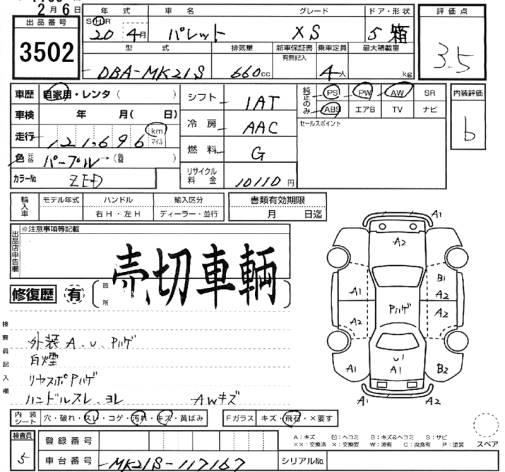 2月6日
出品番号
3502
年式 車名 グレード ドア・形状
20 年 4月 パレット XS 5 箱
型式 排気量 新車保証書 乗車定員 最大積載量
有無記入
DBA-MK21S 660cc 4人 kg
評価点
3.5
車歴 自家用・レンタ( )
車検 年 月( 日)
走行 121,696 km マイル
色 パープル
カラーNo ZED
シフト 1AT
冷房 AAC
燃料 G
リサイクル料金 10110円
純正のみ PS PW AW SR
ABS エアB TV ナビ
セールスポイント
内装評価
b
輸入車 モデル年式 ハンドル 輸入区分
右H・左H ディーラー・並行
書類有効期限
月 日迄
出品店申告欄
※注意事項等記載
売切車輌
修復歴 有
箇所
検査員記入欄
外装A.U.Pハゲ
白煙
リヤスポPハゲ
ハンドルスレ、ヨレ AWキズ
A1 A1
A2
B1
A2 A2
Pハゲ
U1
A1
A1 B2
A1 A1
内装シート 穴・破れ・スレ・コゲ・汚れ・キズ・黄ばみ Fガラス キズ・飛石・×要す
検査員
5
登録番号
車台番号 MK21S-117167 シリアルNo.
A:キズ U:ヘコミ B:キズ&ヘコミ S:サビ
××:交換済 ×:交換要 W:波有 C:腐食有 P:塗装
スペア